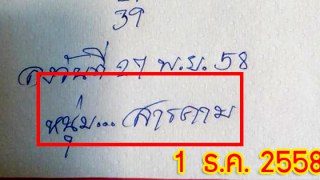 39
วันที่ 27 พ.ย. 58
หนุ่ม... สารคาม
1 ธ.ค. 2558